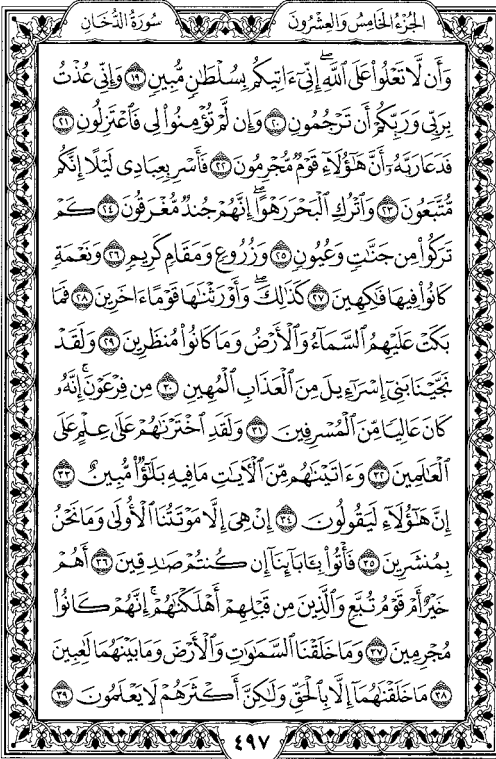 سُورَةُ الدُّخَانِ
الجُزْءُ الخَامِسُ وَالعِشْرُونَ
وَأَن لَّا تَعْلُوا۟ عَلَى ٱللَّهِ ۖ إِنِّىٓ ءَاتِيكُم بِسُلْطَٰنٍ مُّبِينٍ ١٩ وَإِنِّى عُذْتُ
بِرَبِّى وَرَبِّكُمْ أَن تَرْجُمُونِ ٢٠ وَإِن لَّمْ تُؤْمِنُوا۟ لِى فَٱعْتَزِلُونِ ٢١
فَدَعَا رَبَّهُۥٓ أَنَّ هَٰٓؤُلَآءِ قَوْمٌ مُّجْرِمُونَ ٢٢ فَأَسْرِ بِعِبَادِى لَيْلًا إِنَّكُم
مُّتَّبَعُونَ ٢٣ وَٱتْرُكِ ٱلْبَحْرَ رَهْوًا ۖ إِنَّهُمْ جُندٌ مُّغْرَقُونَ ٢٤ كَمْ
تَرَكُوا۟ مِن جَنَّٰتٍ وَعُيُونٍ ٢٥ وَزُرُوعٍ وَمَقَامٍ كَرِيمٍ ٢٦ وَنَعْمَةٍ
كَانُوا۟ فِيهَا فَٰكِهِينَ ٢٧ كَذَٰلِكَ ۖ وَأَوْرَثْنَٰهَا قَوْمًا ءَاخَرِينَ ٢٨ فَمَا
بَكَتْ عَلَيْهِمُ ٱلسَّمَآءُ وَٱلْأَرْضُ وَمَا كَانُوا۟ مُنظَرِينَ ٢٩ وَلَقَدْ
نَجَّيْنَا بَنِىٓ إِسْرَٰٓءِيلَ مِنَ ٱلْعَذَابِ ٱلْمُهِينِ ٣٠ مِن فِرْعَوْنَ ۚ إِنَّهُۥ
كَانَ عَالِيًا مِّنَ ٱلْمُسْرِفِينَ ٣١ وَلَقَدِ ٱخْتَرْنَٰهُمْ عَلَىٰ عِلْمٍ عَلَى
ٱلْعَٰلَمِينَ ٣٢ وَءَاتَيْنَٰهُم مِّنَ ٱلْءَايَٰتِ مَا فِيهِ بَلَٰٓؤٌا۟ مُّبِينٌ ٣٣
إِنَّ هَٰٓؤُلَآءِ لَيَقُولُونَ ٣٤ إِنْ هِىَ إِلَّا مَوْتَتُنَا ٱلْأُولَىٰ وَمَا نَحْنُ
بِمُنشَرِينَ ٣٥ فَأْتُوا۟ بِـَٔابَآئِنَآ إِن كُنتُمْ صَٰدِقِينَ ٣٦ أَهُمْ
خَيْرٌ أَمْ قَوْمُ تُبَّعٍ وَٱلَّذِينَ مِن قَبْلِهِمْ ۚ أَهْلَكْنَٰهُمْ ۖ إِنَّهُمْ كَانُوا۟
مُجْرِمِينَ ٣٧ وَمَا خَلَقْنَا ٱلسَّمَٰوَٰتِ وَٱلْأَرْضَ وَمَا بَيْنَهُمَا لَٰعِبِينَ
٣٨ مَا خَلَقْنَٰهُمَآ إِلَّا بِٱلْحَقِّ وَلَٰكِنَّ أَكْثَرَهُمْ لَا يَعْلَمُونَ ٣٩
٤٩٧